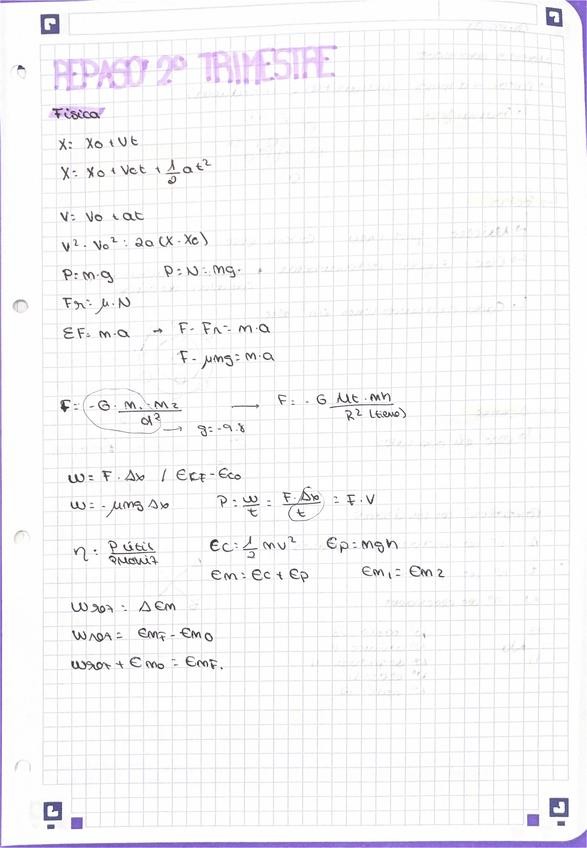 REPASO 2º TRIMESTRE
Física
X= X0 + Vt
X= X0 + V0t + 1/2 at²
V= V0 + at
V² - V0² = 2a (X - X0)
P= m·g P= N = mg.
Fr= μ·N
ΣF= m·a → F - Fr = m·a
F - μmg = m·a
F= -G · m1 · m2 / d² → F= -G Mt · mh / R² (tierra)
→ g= -9.8
W= F · Δx / ECF - EC0
W= - μmg Δx P= W/t = F · Δx / t = F · V
η = P útil / P motor Ec= 1/2 mv² Ep= mgh
Em= Ec + Ep Em1 = Em2
Wroz = ΔEm
Wroz = EmF - Em0
Wroz + Em0 = EmF.